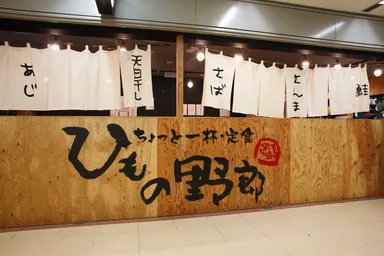 あじ
天日干し
さば
さんま
鮭
ちょっと一杯・定食
ひもの野郎